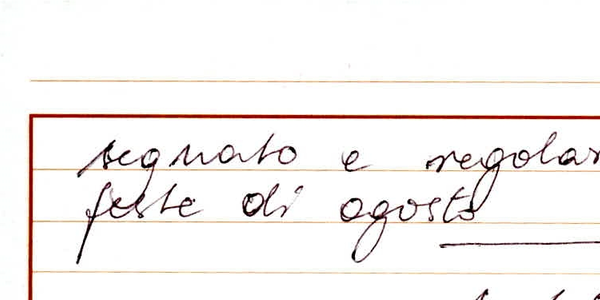 segnato e regolar
feste di agosto